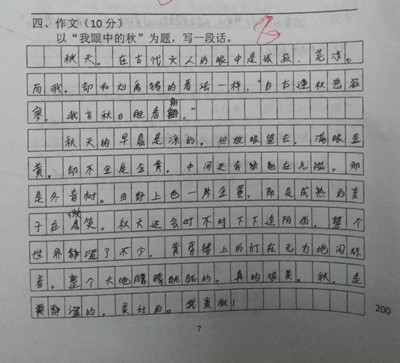 四、作文(10分)
以“我眼中的秋”为题,写一段话。
8
秋天。在古代文人的眼中是寂寂、荒凉。
而我。却和刘禹锡的看法一样,“自古逢秋悲寂
寥。我言秋日胜春朝。”
秋天的早晨是凉的。但放眼望去,满眼金
黄,却不全是金黄。中间还有绿色在充溢。那
是冬青树。田野上也一片金黄,那是成熟的麦
子在微笑。秋天还会时不时下下连阴雨,整个
世界静谧了不少,黄昏路上的灯在无力地闪烁
着。整个大地朦朦胧胧的,真的很美。秋,是
黄静谧的,美好的。我爱秋!
200
7